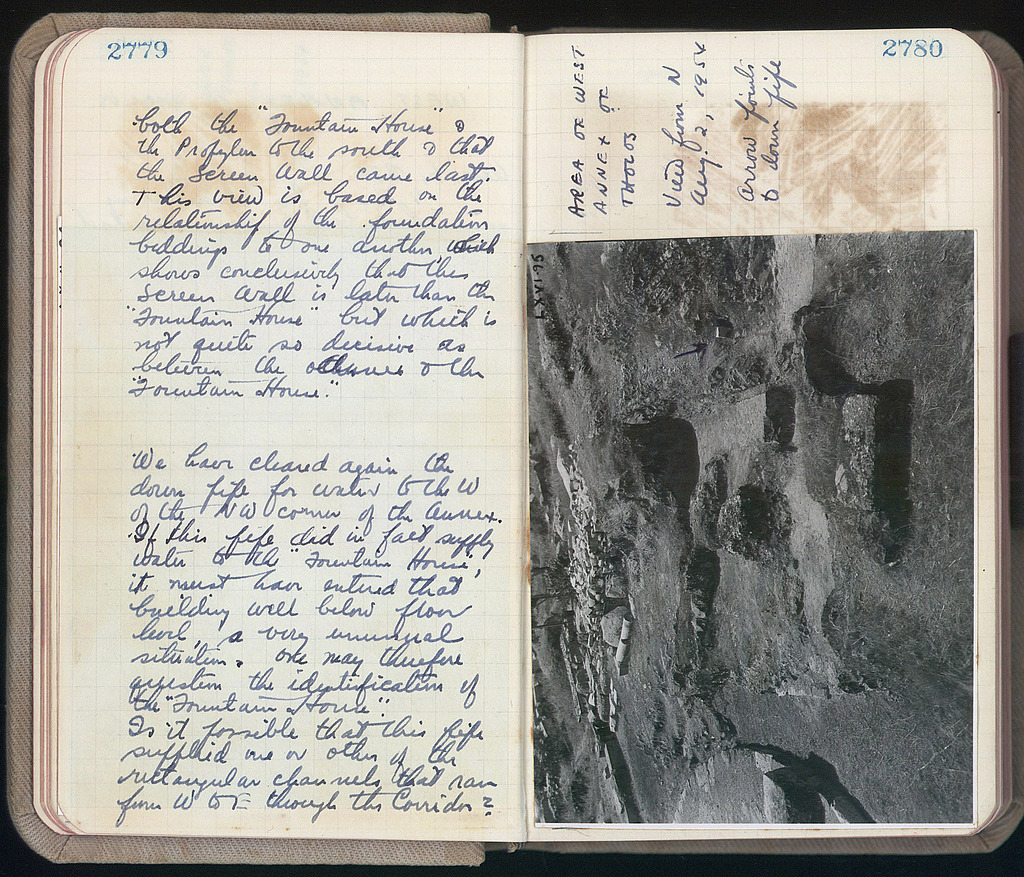 2779
both the "Fountain House" &
the Propylon to the south & that
the Screen Wall came last.
This view is based on the
relationship of the foundation
beddings to one another, which
shows conclusively that this
Screen Wall is later than the
"Fountain House" but which is
not quite so decisive as
between the & the
"Fountain House".
We have cleared again the
down pipe for water to the W
of the NW corner of the Annex.
If this pipe did in fact supply
water to the "Fountain House",
it must have entered that
building well below floor
level, a very unusual
situation. One may therefore
question the identification of
the "Fountain House".
Is it possible that this pipe
supplied one or other of the
rectangular channels that ran
from W to E through the Corridor?
2780
AREA OF WEST
ANNEX OF
THOLOS
View from N
Aug. 2, 1954
Arrow points
to down pipe
LXVI-95